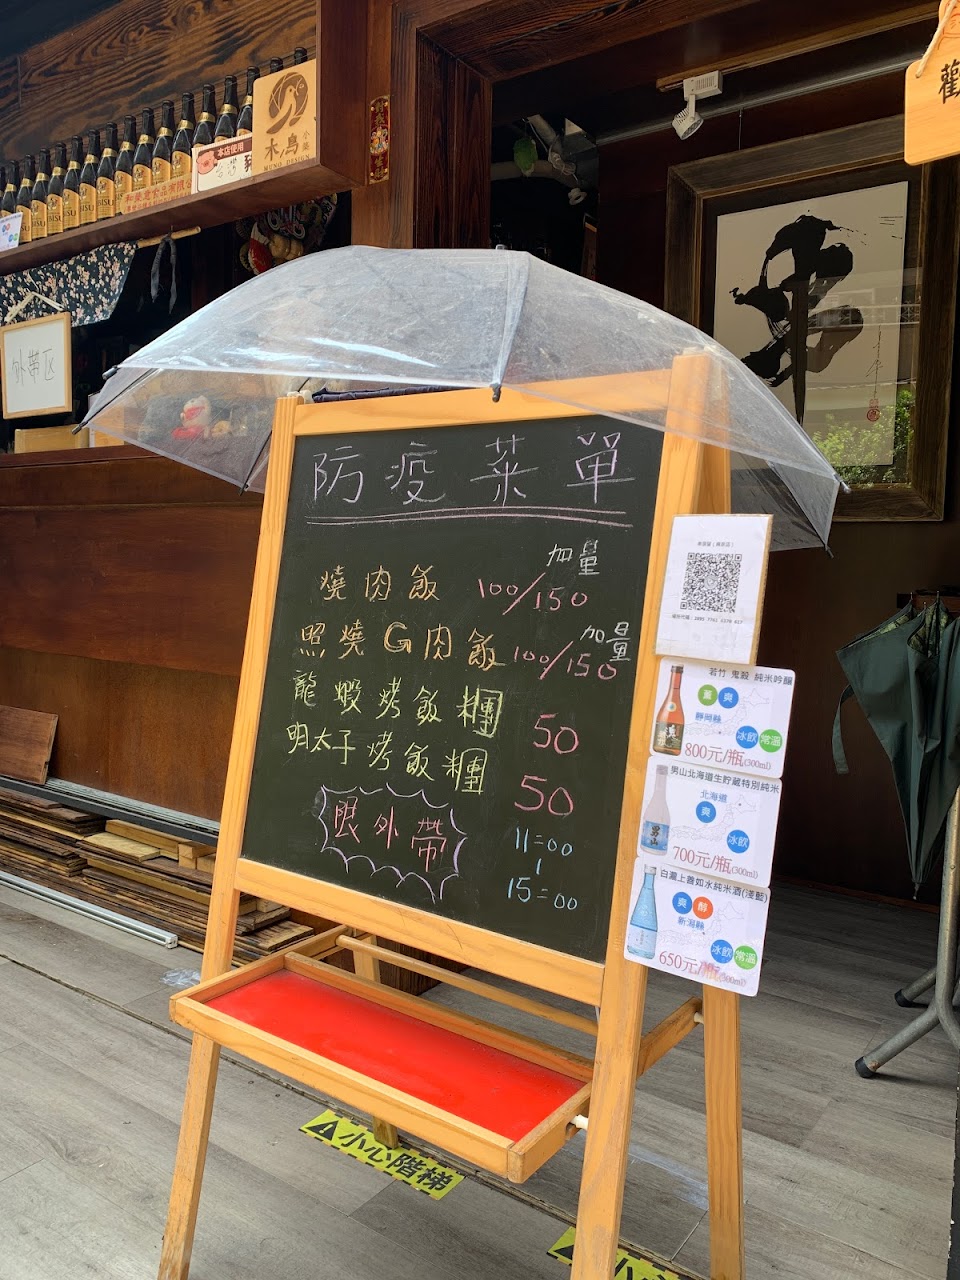 木鳥
小築
MUNO DESIGN
本店使用
台灣豬
外帶区
防疫菜單
加量
燒肉飯 100/150
加量
照燒G肉飯 100/150
龍蝦烤飯糰 50
明太子烤飯糰 50
限外帶
11:00
|
15:00
若竹 鬼殺 純米吟釀
爽
靜岡縣
冰飲 常溫
800元/瓶(300ml)
男山北海道生貯藏特別純米
北海道
爽
冰飲
700元/瓶(300ml)
白瀧上善如水純米酒(淺藍)
爽 醇
新潟縣
冰飲 常溫
650元/瓶(300ml)
小心階梯
小心